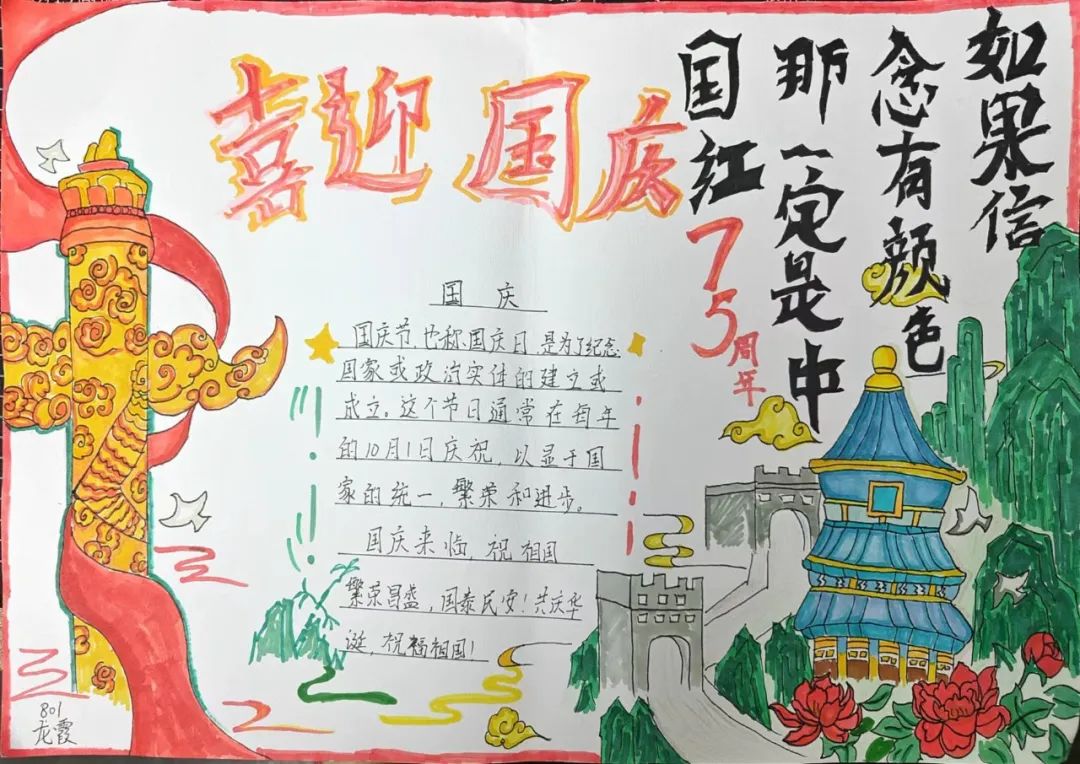 喜迎国庆
如果信
念有颜色
那一定是中
国红
75周年
国庆
国庆节,也称国庆日,是为了纪念
国家或政治实体的建立或
成立。这个节日通常在每年
的10月1日庆祝,以显于国
家的统一,繁荣和进步。
国庆来临,祝祖国
繁荣昌盛,国泰民安!共庆华
诞,祝福祖国!
801
龙霞